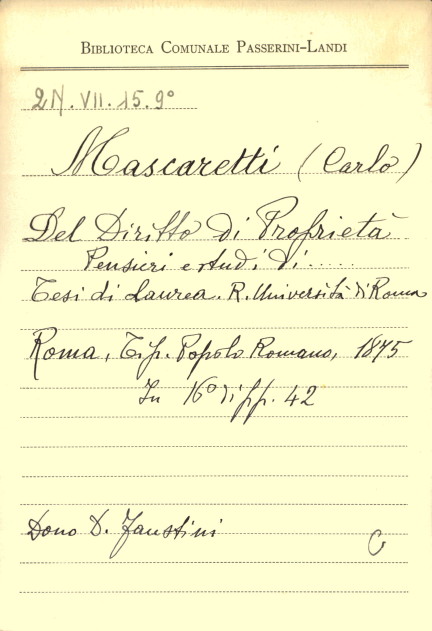 BIBLIOTECA COMUNALE PASSERINI-LANDI
2N.VII.15.9°
Mascaretti (Carlo)
Del Diritto di Proprietà
Pensieri e studi di.....
Tesi di Laurea. R. Università di Roma
Roma, Tip. Popolo Romano, 1875
In 16° di pp. 42
Dono D. Faustini
C